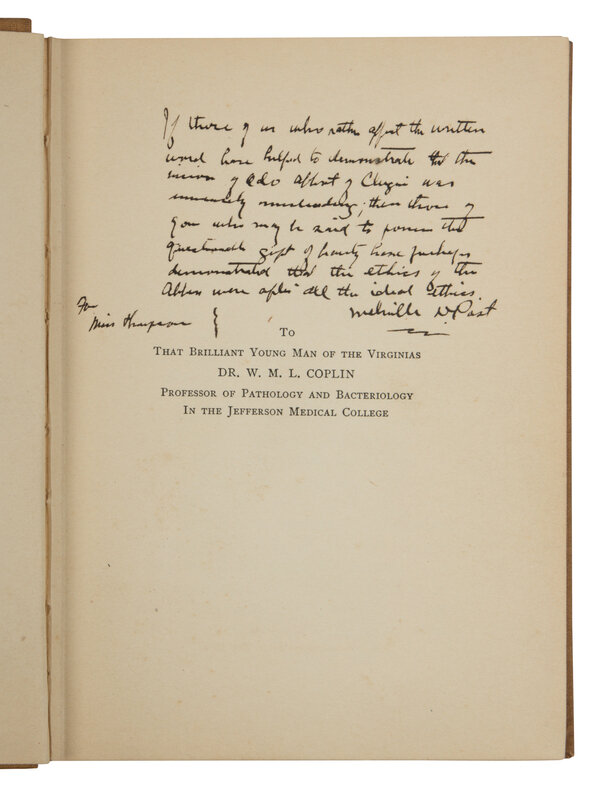 If those of us who rather affect the written
word have helped to demonstrate that the
of Abbot of was
misleading, then those of
you who may be said to possess the
questionable gift of beauty have perhaps
demonstrated that the ethics of the
Abbess were after all the ideal ethics.
Melville D Post
For
Miss Thompson }
To
That Brilliant Young Man of the Virginias
DR. W. M. L. COPLIN
Professor of Pathology and Bacteriology
In the Jefferson Medical College